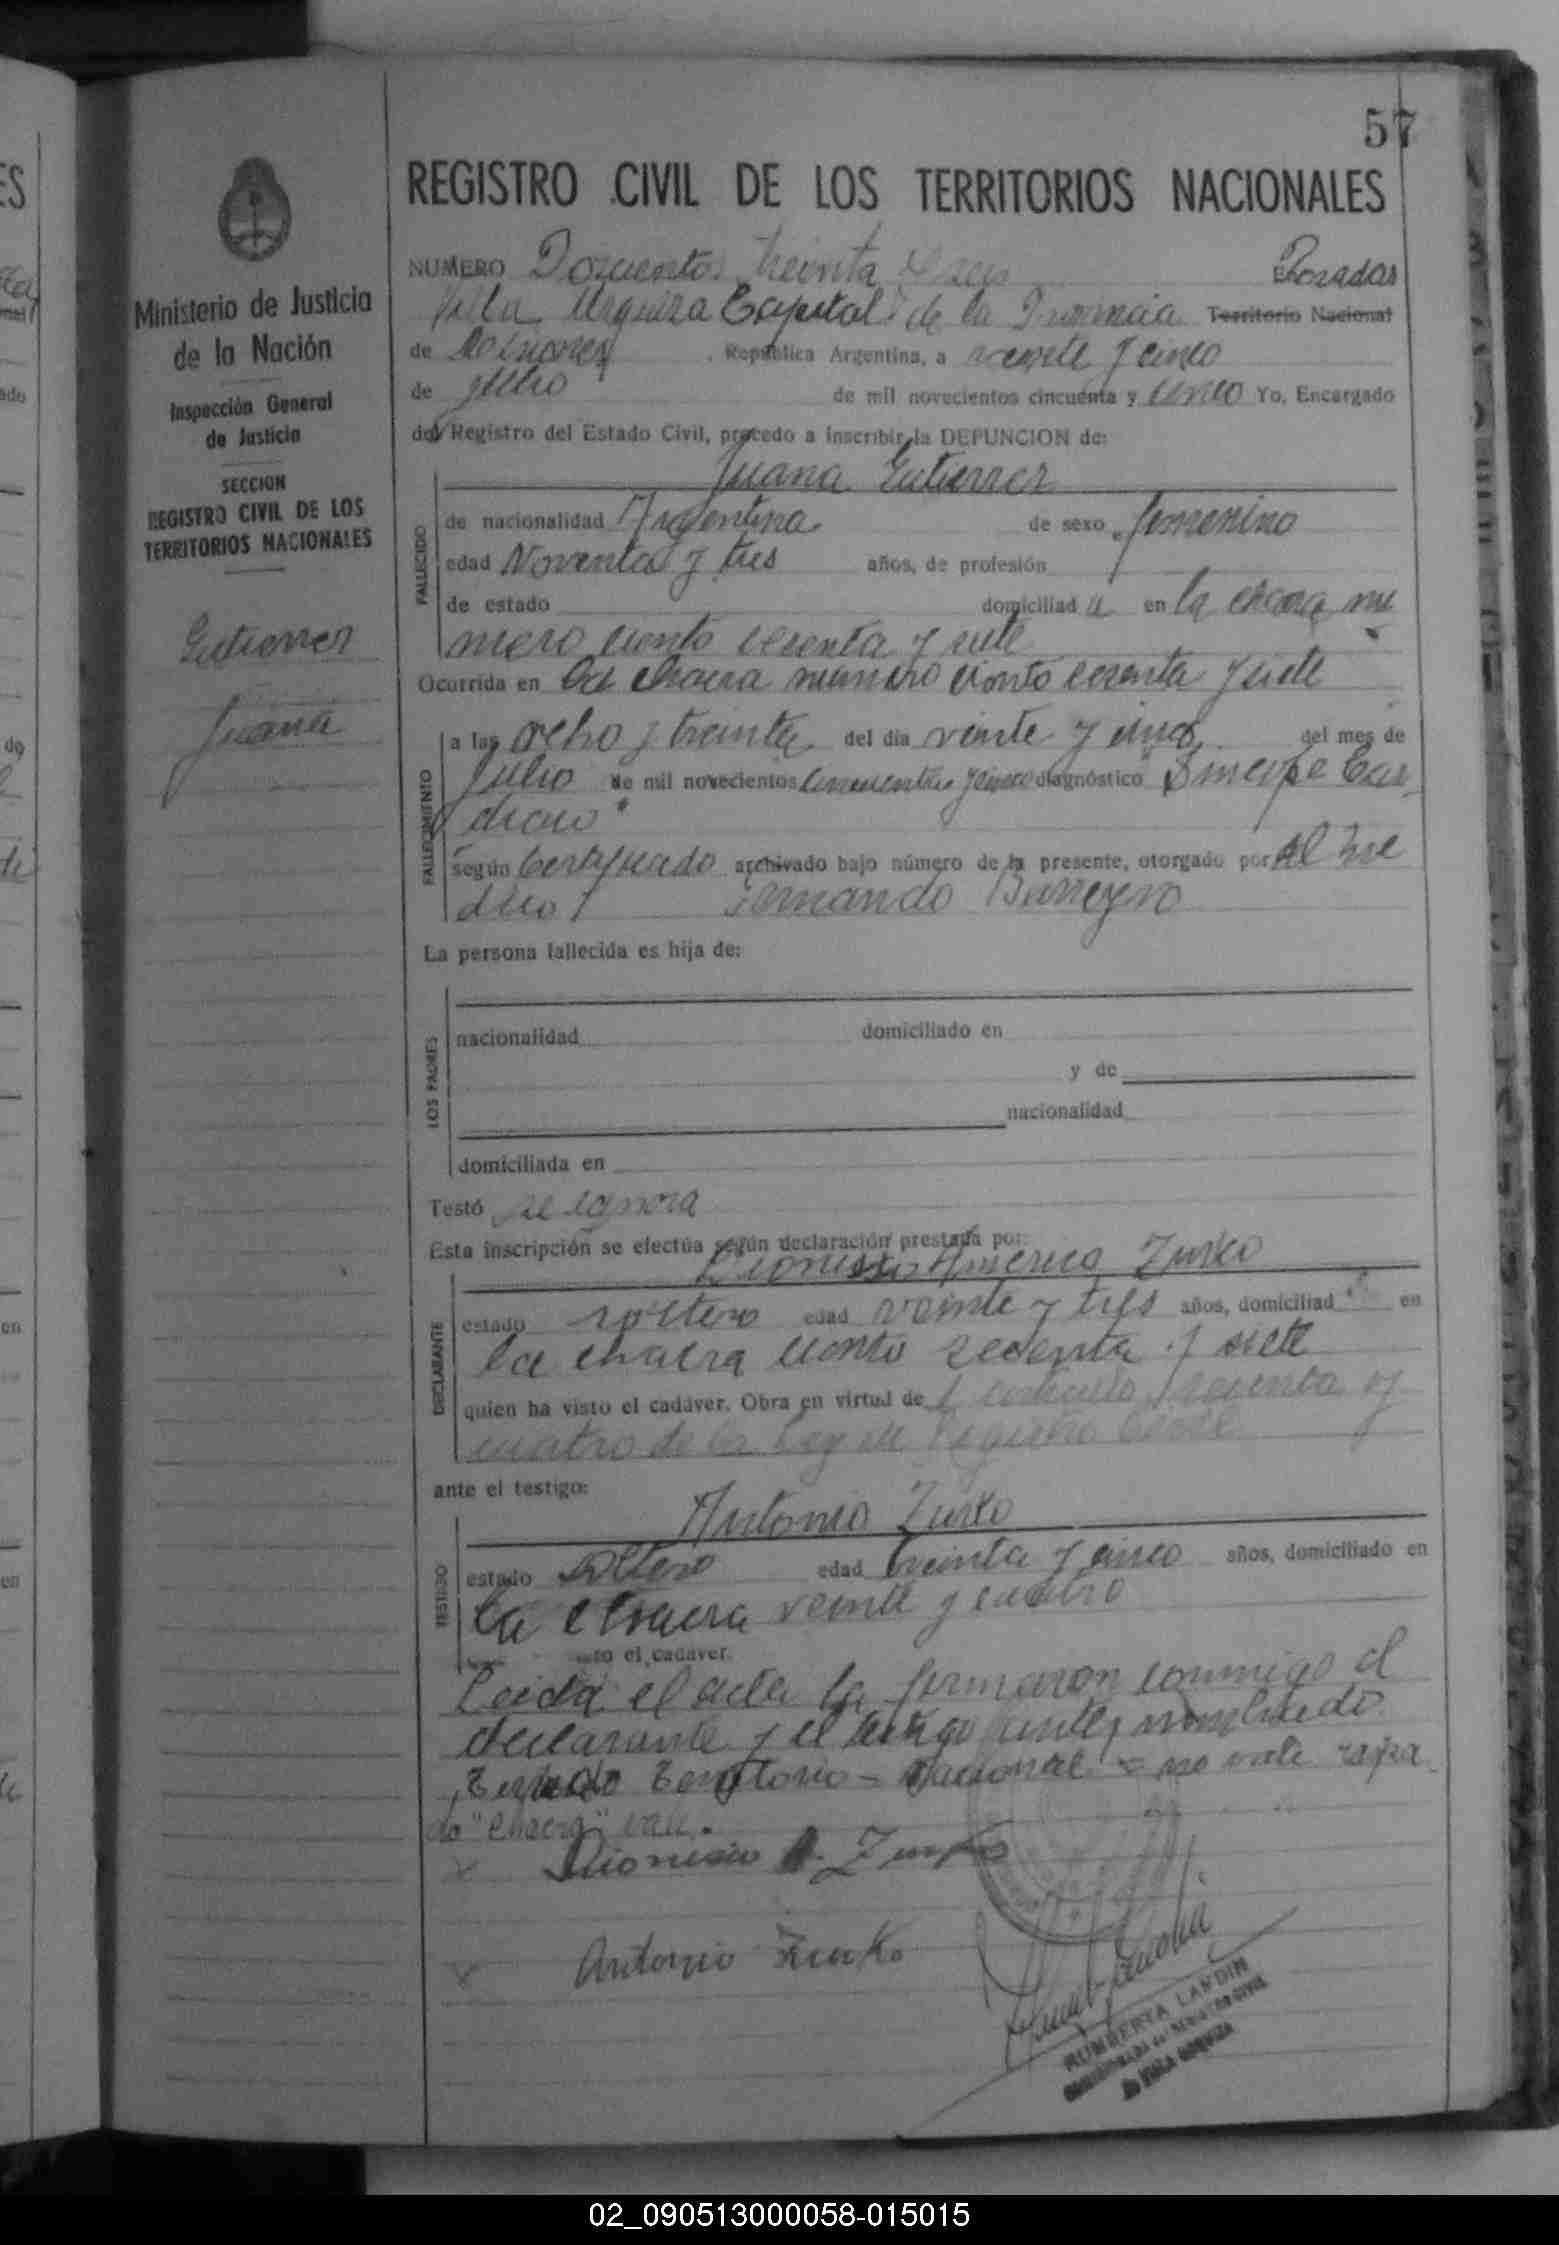 57
REGISTRO CIVIL DE LOS TERRITORIOS NACIONALES
Ministerio de Justicia
de la Nación
Inspección General
de Justicia
SECCION
REGISTRO CIVIL DE LOS
TERRITORIOS NACIONALES
Gutierrez
Juana
NUMERO Doscientos treinta y seis Posadas
Villa Urquiza Capital de la Provincia Territorio Nacional
de Misiones, República Argentina, a veinte y cinco
de Julio de mil novecientos cincuenta y cinco Yo, Encargado
del Registro del Estado Civil, procedo a inscribir la DEFUNCION de:
Juana Gutierrez
FALLECIDO
de nacionalidad Argentina de sexo femenino
edad Noventa y tres años, de profesión
de estado domiciliad a en la chacra nu
mero ciento sesenta y siete
Ocurrida en la chacra numero ciento sesenta y siete
FALLECIMIENTO
a las ocho y treinta del día veinte y cinco del mes de
Julio de mil novecientos cincuenta y cinco diagnóstico "Sincope Car
diaco"
según Certificado archivado bajo número de la presente, otorgado por el me
dico Fernando Barreyro
La persona fallecida es hija de:
LOS PADRES
nacionalidad domiciliado en
y de
nacionalidad
domiciliada en
Testó se ignora
Esta inscripción se efectúa según declaración prestada por:
Dionisio Americo Zurko
DECLARANTE
estado soltero edad veinte y tres años, domiciliad en
la chacra ciento sesenta y siete
quien ha visto el cadáver. Obra en virtud de sesenta y
cuatro de la Ley de Registro Civil
ante el testigo:
Antonio Zurko
TESTIGO
estado soltero edad treinta y cinco años, domiciliado en
la chacra veinte y cuatro
to el cadáver.
Leida el acta la firmaron conmigo el
declarante y el testigo antes nombrado.
Testado Territorio - Nacional = no vale raspa
do "chacra" vale.
Dionisio A. Zurko
Antonio Zurko
RUMBERTA LANDIN
REGISTRO CIVIL
VILLA URQUIZA
02_090513000058-015015